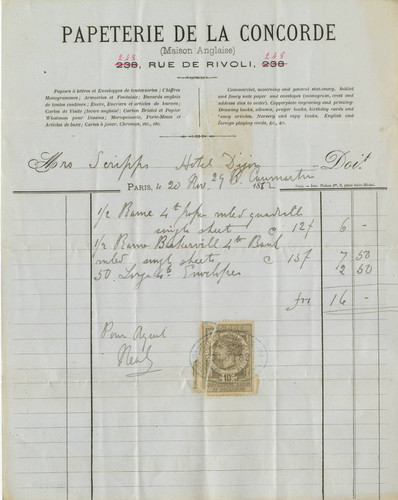 PAPETERIE DE LA CONCORDE
(Maison Anglaise)
248 248
238, RUE DE RIVOLI, 238
Papiers à lettres et Enveloppes de toutes sortes; Chiffres
Monogrammes; Armoiries et Fantaisie; Buvards anglais
de toutes couleurs; Encre, Encriers et articles de bureau;
Cartes de Visite (façon anglaise); Carton Bristol et Papier
Whatman pour Dessins; Maroquinerie, Porte-Monnaie et
Articles de luxe; Cartes à jouer, Chromos, etc., etc.
Commercial, mourning and general stationery. Initial
and fancy note paper and envelopes (monogram, crest and
address done to order). Copperplate engraving and printing.
Drawing books, albums, prayer books, birthday cards and
fancy articles. Nursery and copy books. English and
foreign playing cards, &c, &c.
Mrs Scripps Hotel Dijon Doit
29 r. Caumartin
PARIS, le 20 Nov. 1882
1/2 Rame 4to ruled quadrille
single sheet c 12f 6 -
1/2 Rame Baskerville 4to Bank
ruled single sheets c 15f 7 50
50 Large 4to Envelopes 2 50
frs 16 -
Pour Acquit
10